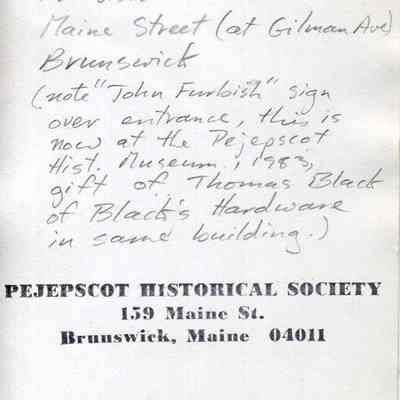 Maine Street (at Gilman Ave)
Brunswick
(note "John Furbish" sign
over entrance, this is
now at the Pejepscot
Hist. Museum, 1983,
gift of Thomas Black
of Black's Hardware
in same building.)
PEJEPSCOT HISTORICAL SOCIETY
159 Maine St.
Brunswick, Maine 04011